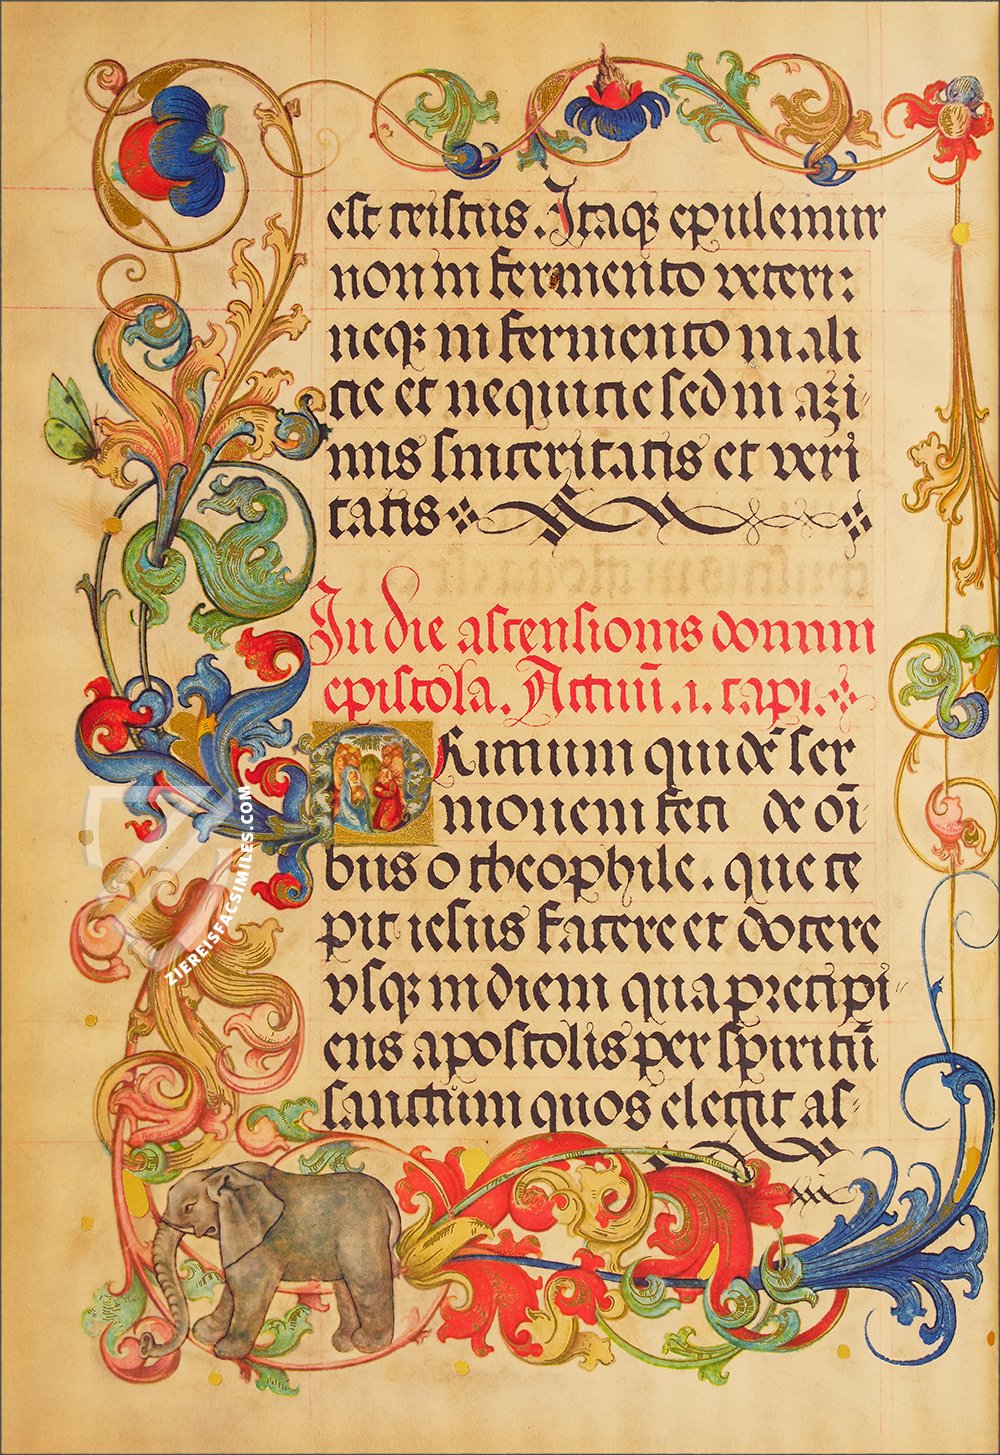 est cristus. Itaqꝫ epulemur
non in fermento veteri:
neqꝫ in fermento mali
cie et nequicie sed in azi
mis sinceritatis et veri
tatis
In die ascensionis domini
epistola. Actuū .1. capi.
PRimum quidē ser
monem feci de oī
bus o theophile. que ce
pit iesus facere et docere
vsqꝫ in diem qua precipi
ens apostolis per spiritū
sanctum quos elegit as
ZIEREISFACSIMILES.COM